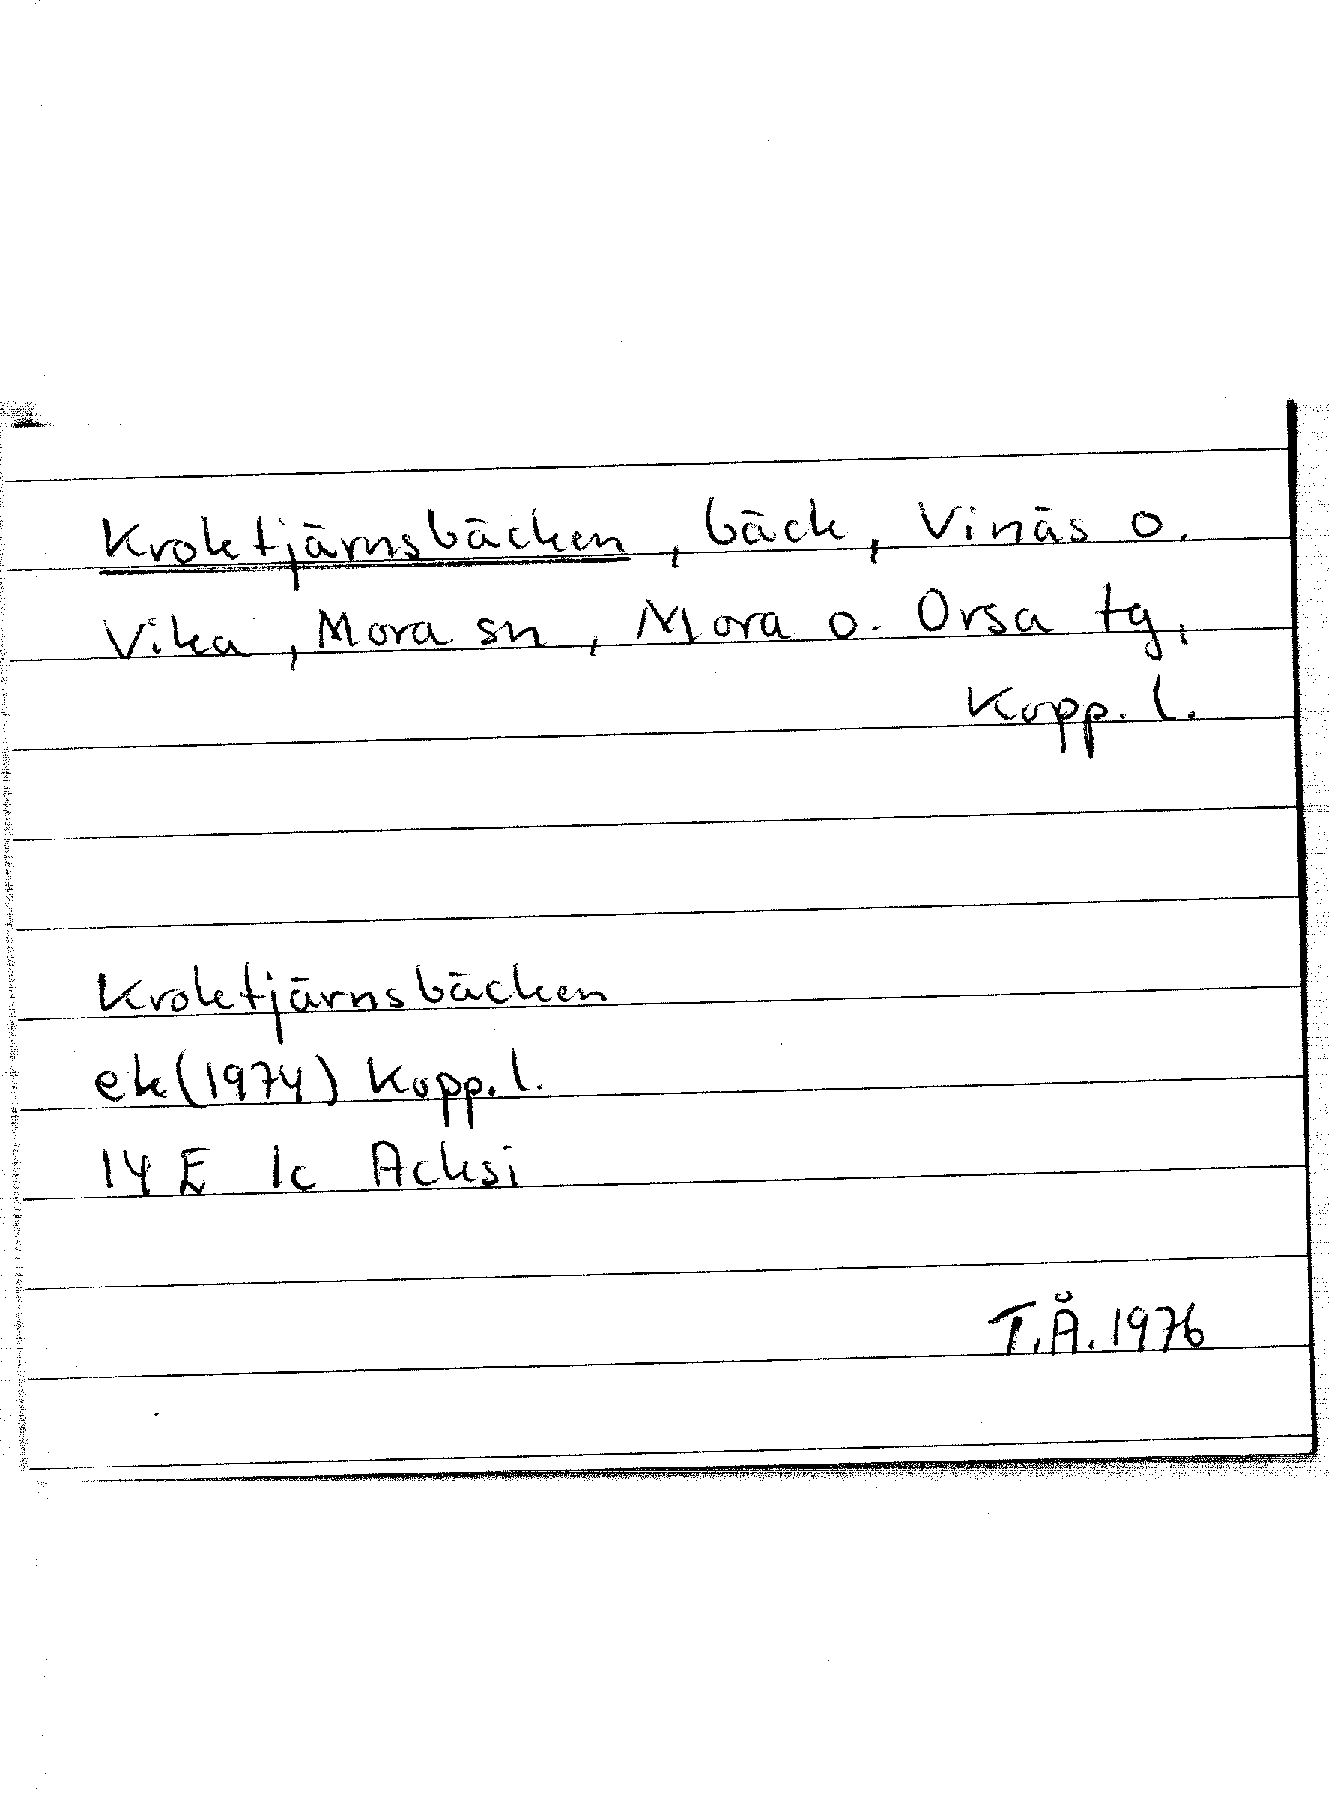 Kroktjärnsbäcken, bäck, Vinäs o.
Vika, Mora sn, Mora o. Orsa tg,
Kopp. l.
Kroktjärnsbäcken
ek (1974) Kopp. l.
14 E 1c Acksi
T.Å. 1976